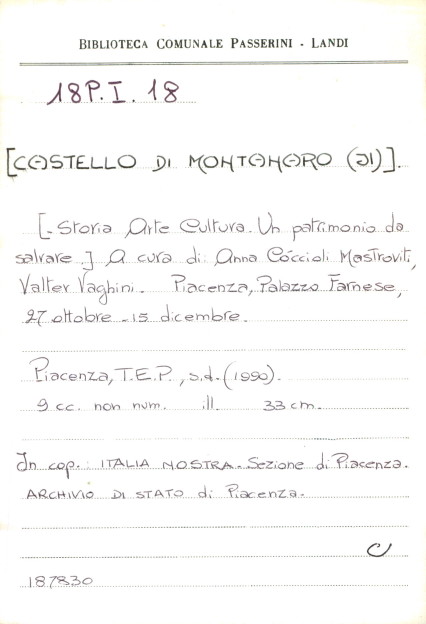 BIBLIOTECA COMUNALE PASSERINI - LANDI
18P.I.18
[CASTELLO DI MONTANARO (Il)].
[- Storia Arte Cultura. Un patrimonio da
salvare.] A cura di Anna Còccioli Mastroviti,
Valter Vaghini. Piacenza, Palazzo Farnese,
27 ottobre - 15 dicembre.
Piacenza, T.E.P., s.d. (1990).
9 cc. non num. ill. 33 cm.
In cop.: ITALIA NOSTRA. Sezione di Piacenza.
ARCHIVIO DI STATO di Piacenza.
C
187830